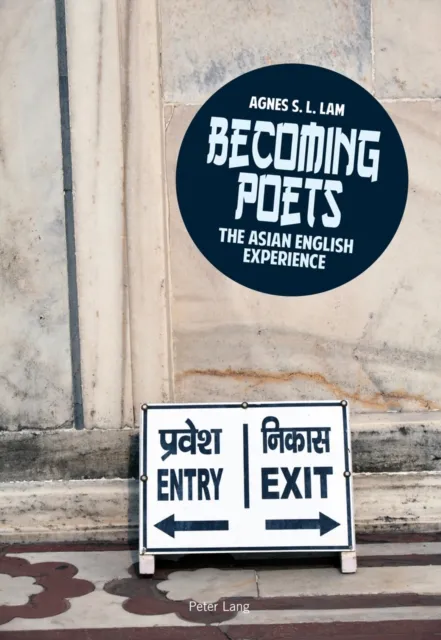 AGNES S. L. LAM
BECOMING
POETS
THE ASIAN ENGLISH
EXPERIENCE
प्रवेश
ENTRY
निकास
EXIT
Peter Lang